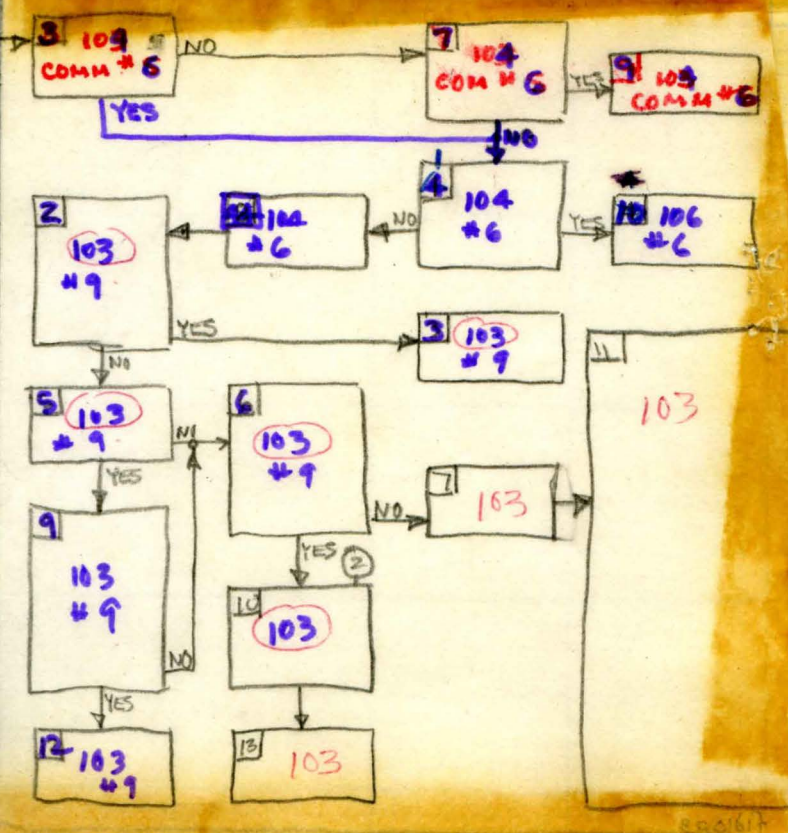 3
104
COMM # 6
NO
7
104
COMM # 6
YES
9
104
COMM # 6
YES
NO
2
103
# 9
104
# 6
NO
4
104
# 6
YES
10 106
# 6
YES
3 103
# 9
NO
11
103
5 103
# 9
NO
6
103
# 9
YES
NO
7
103
9
103
# 9
NO
YES
2
10
103
YES
12 103
# 9
13 103